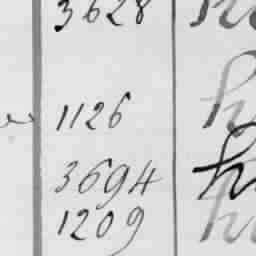 3628
1126
3694
1209